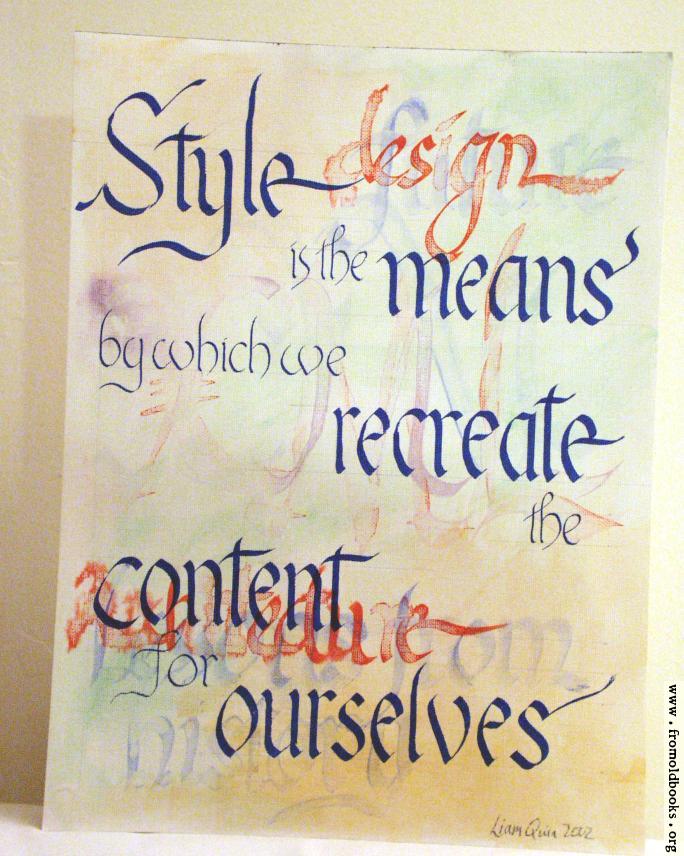 Style design
is the means
by which we
recreate
the
content
for
ourselves
Liam Quin 2002
www.fromoldbooks.org